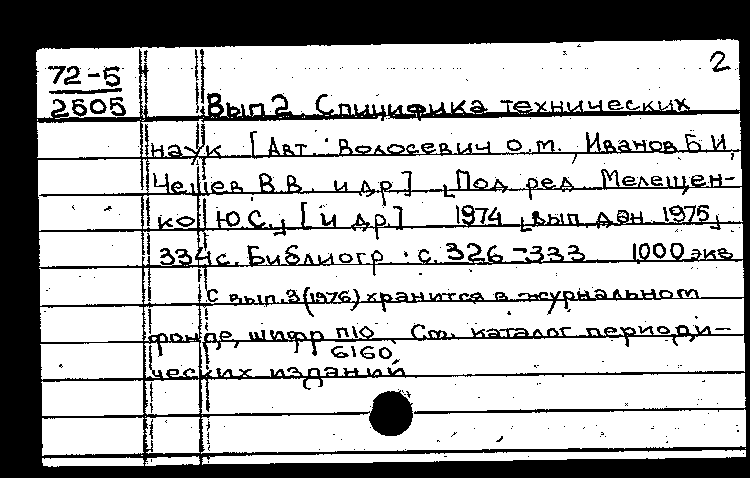 2
72-5
2605
Вып 2. Специфика технических
наук [Авт.: Волосевич О.М., Иванов Б.И,
Чешев В.В. и др.] [Под ред Мелещен-
ко Ю.С.] [и др.] 1974 [вып дан 1975]
334 с. Библиогр: с. 326-333 1000 экз
С вып. 3 (1976) хранится в журнальном
фонде, шифр П10/6160. См. каталог периоди-
ческих изданий